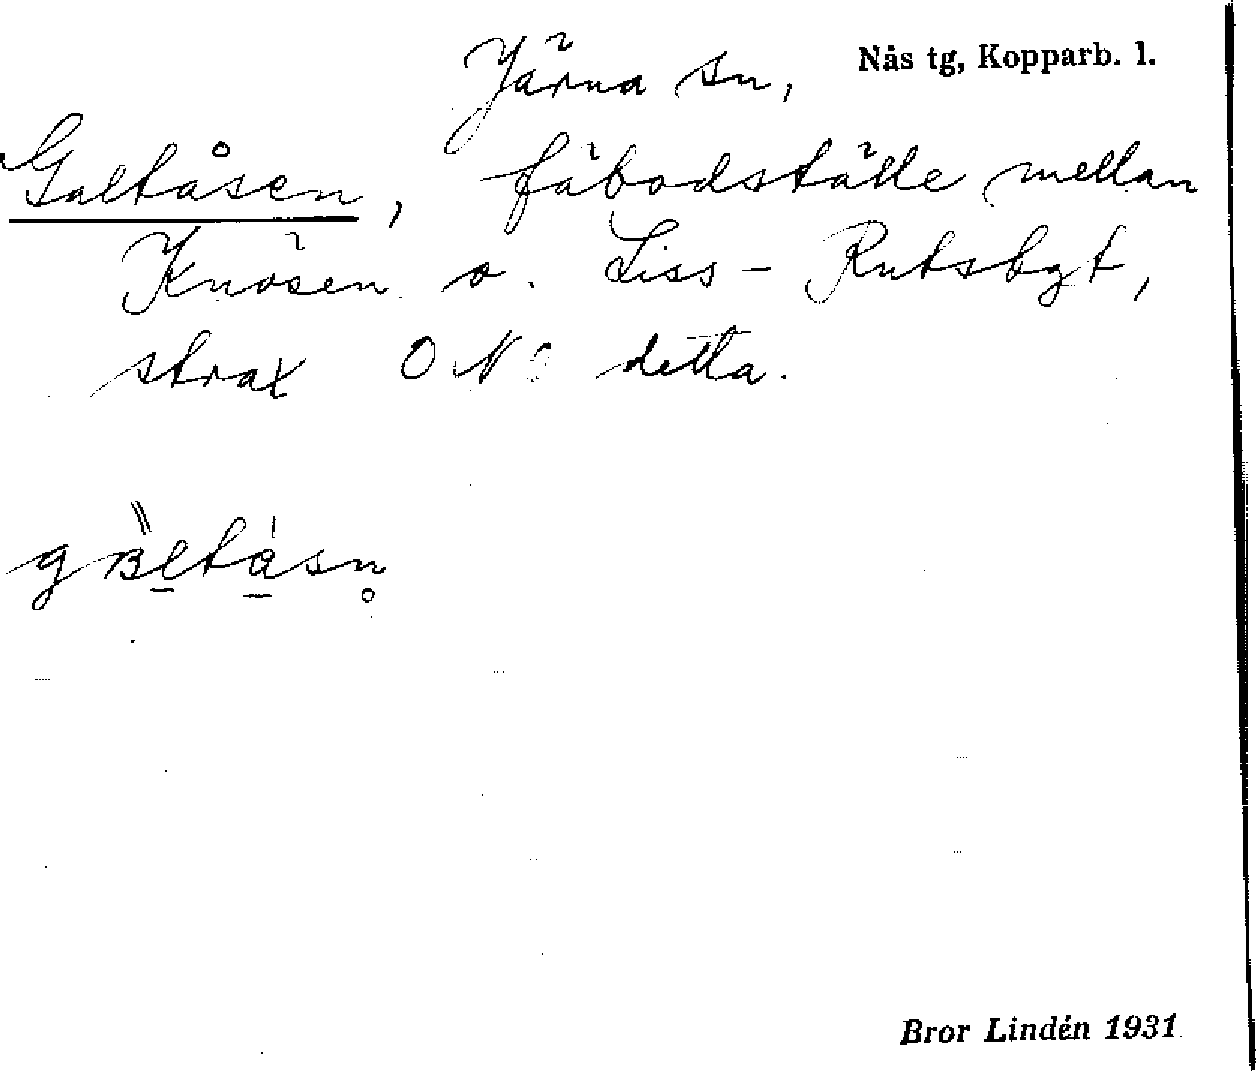 Järna sn, Nås tg, Kopparb. l.
Galtåsen, fäbodställe mellan
Knösen o. Liss-Rutsbgt,
strax ONO detta.
gàltásn̥
Bror Lindén 1931